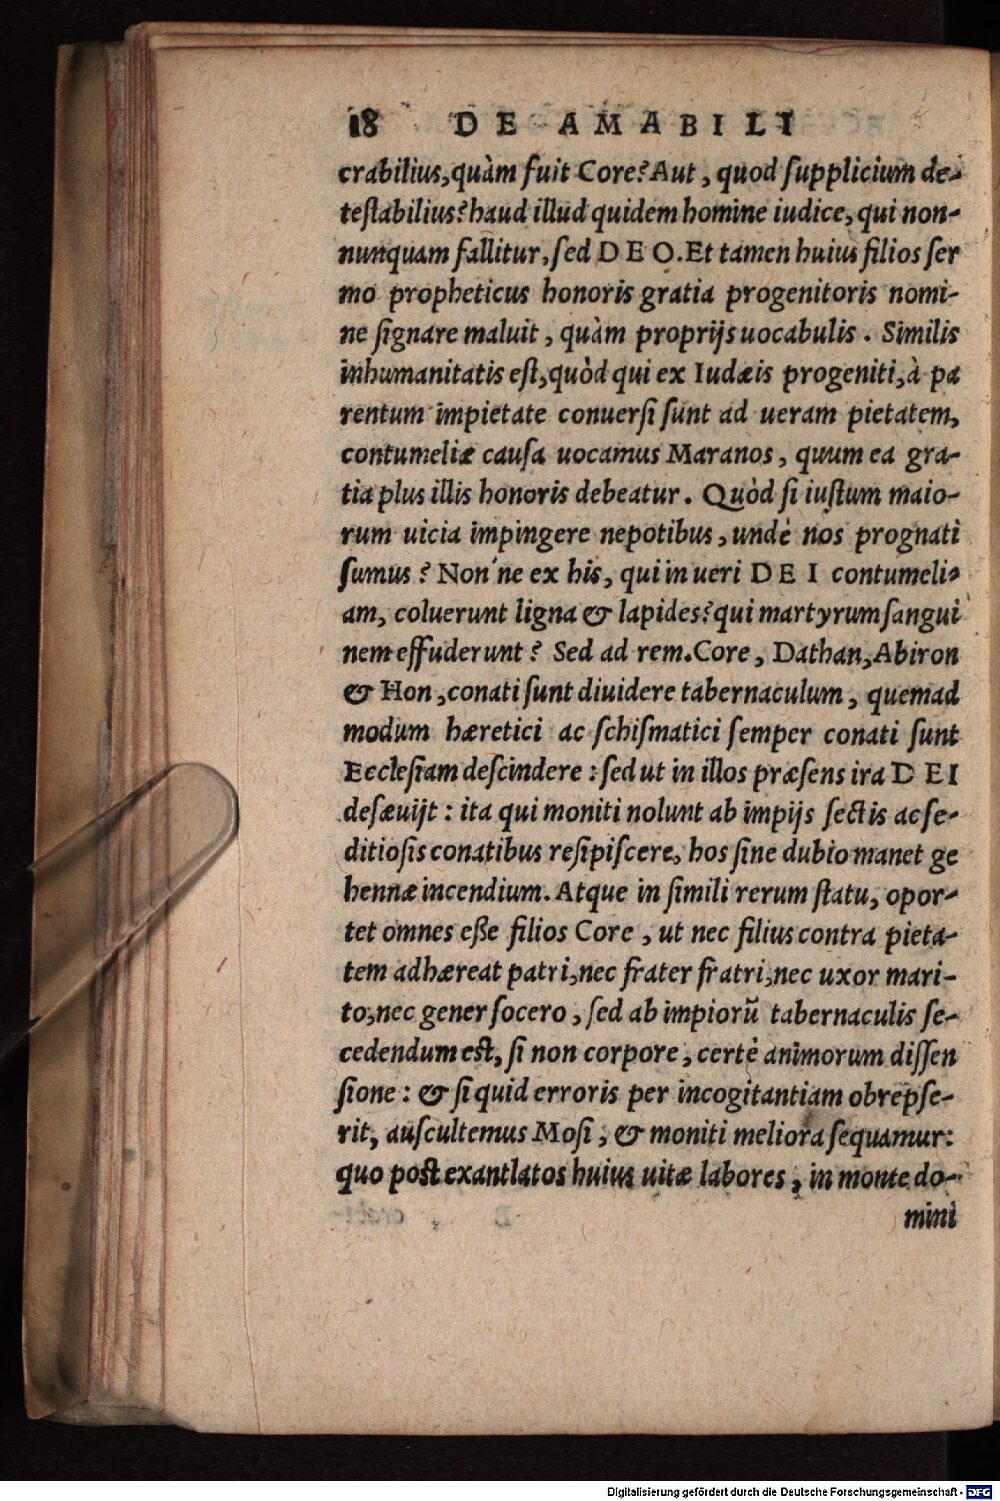 18 DE AMABILI
crabilius, quàm fuit Core? Aut, quod ſupplicium de-
teſtabilius? haud illud quidem homine iudice, qui non-
nunquam fallitur, ſed DEO. Et tamen huius filios ſer
mo propheticus honoris gratia progenitoris nomi-
ne ſignare maluit, quàm proprijs uocabulis. Similis
inhumanitatis eſt, quòd qui ex Iudæis progeniti, à pa
rentum impietate conuerſi ſunt ad ueram pietatem,
contumeliæ cauſa uocamus Maranos, quum ea gra-
tia plus illis honoris debeatur. Quòd ſi iuſtum maio-
rum uicia impingere nepotibus, undè nos prognati
ſumus? Non'ne ex his, qui in ueri DEI contumeli-
am, coluerunt ligna & lapides? qui martyrum ſangui
nem effuderunt? Sed ad rem. Core, Dathan, Abiron
& Hon, conati ſunt diuidere tabernaculum, quemad
modum hæretici ac ſchiſmatici ſemper conati ſunt
Eccleſiam deſcindere: ſed ut in illos præſens ira DEI
deſæuijt: ita qui moniti nolunt ab impijs ſectis ac ſe-
ditioſis conatibus reſipiſcere, hos ſine dubio manet ge
hennæ incendium. Atque in ſimili rerum ſtatu, opor-
tet omnes eſſe filios Core, ut nec filius contra pieta-
tem adhæreat patri, nec frater fratri, nec uxor mari-
to, nec gener ſocero, ſed ab impiorũ tabernaculis ſe-
cedendum eſt, ſi non corpore, certè animorum diſſen
ſione: & ſi quid erroris per incogitantiam obrepſe-
rit, auſcultemus Moſi, & moniti meliora ſequamur:
quo poſt exantlatos huius uitæ labores, in monte do-
mini
Digitalisierung gefördert durch die Deutsche Forschungsgemeinschaft - DFG